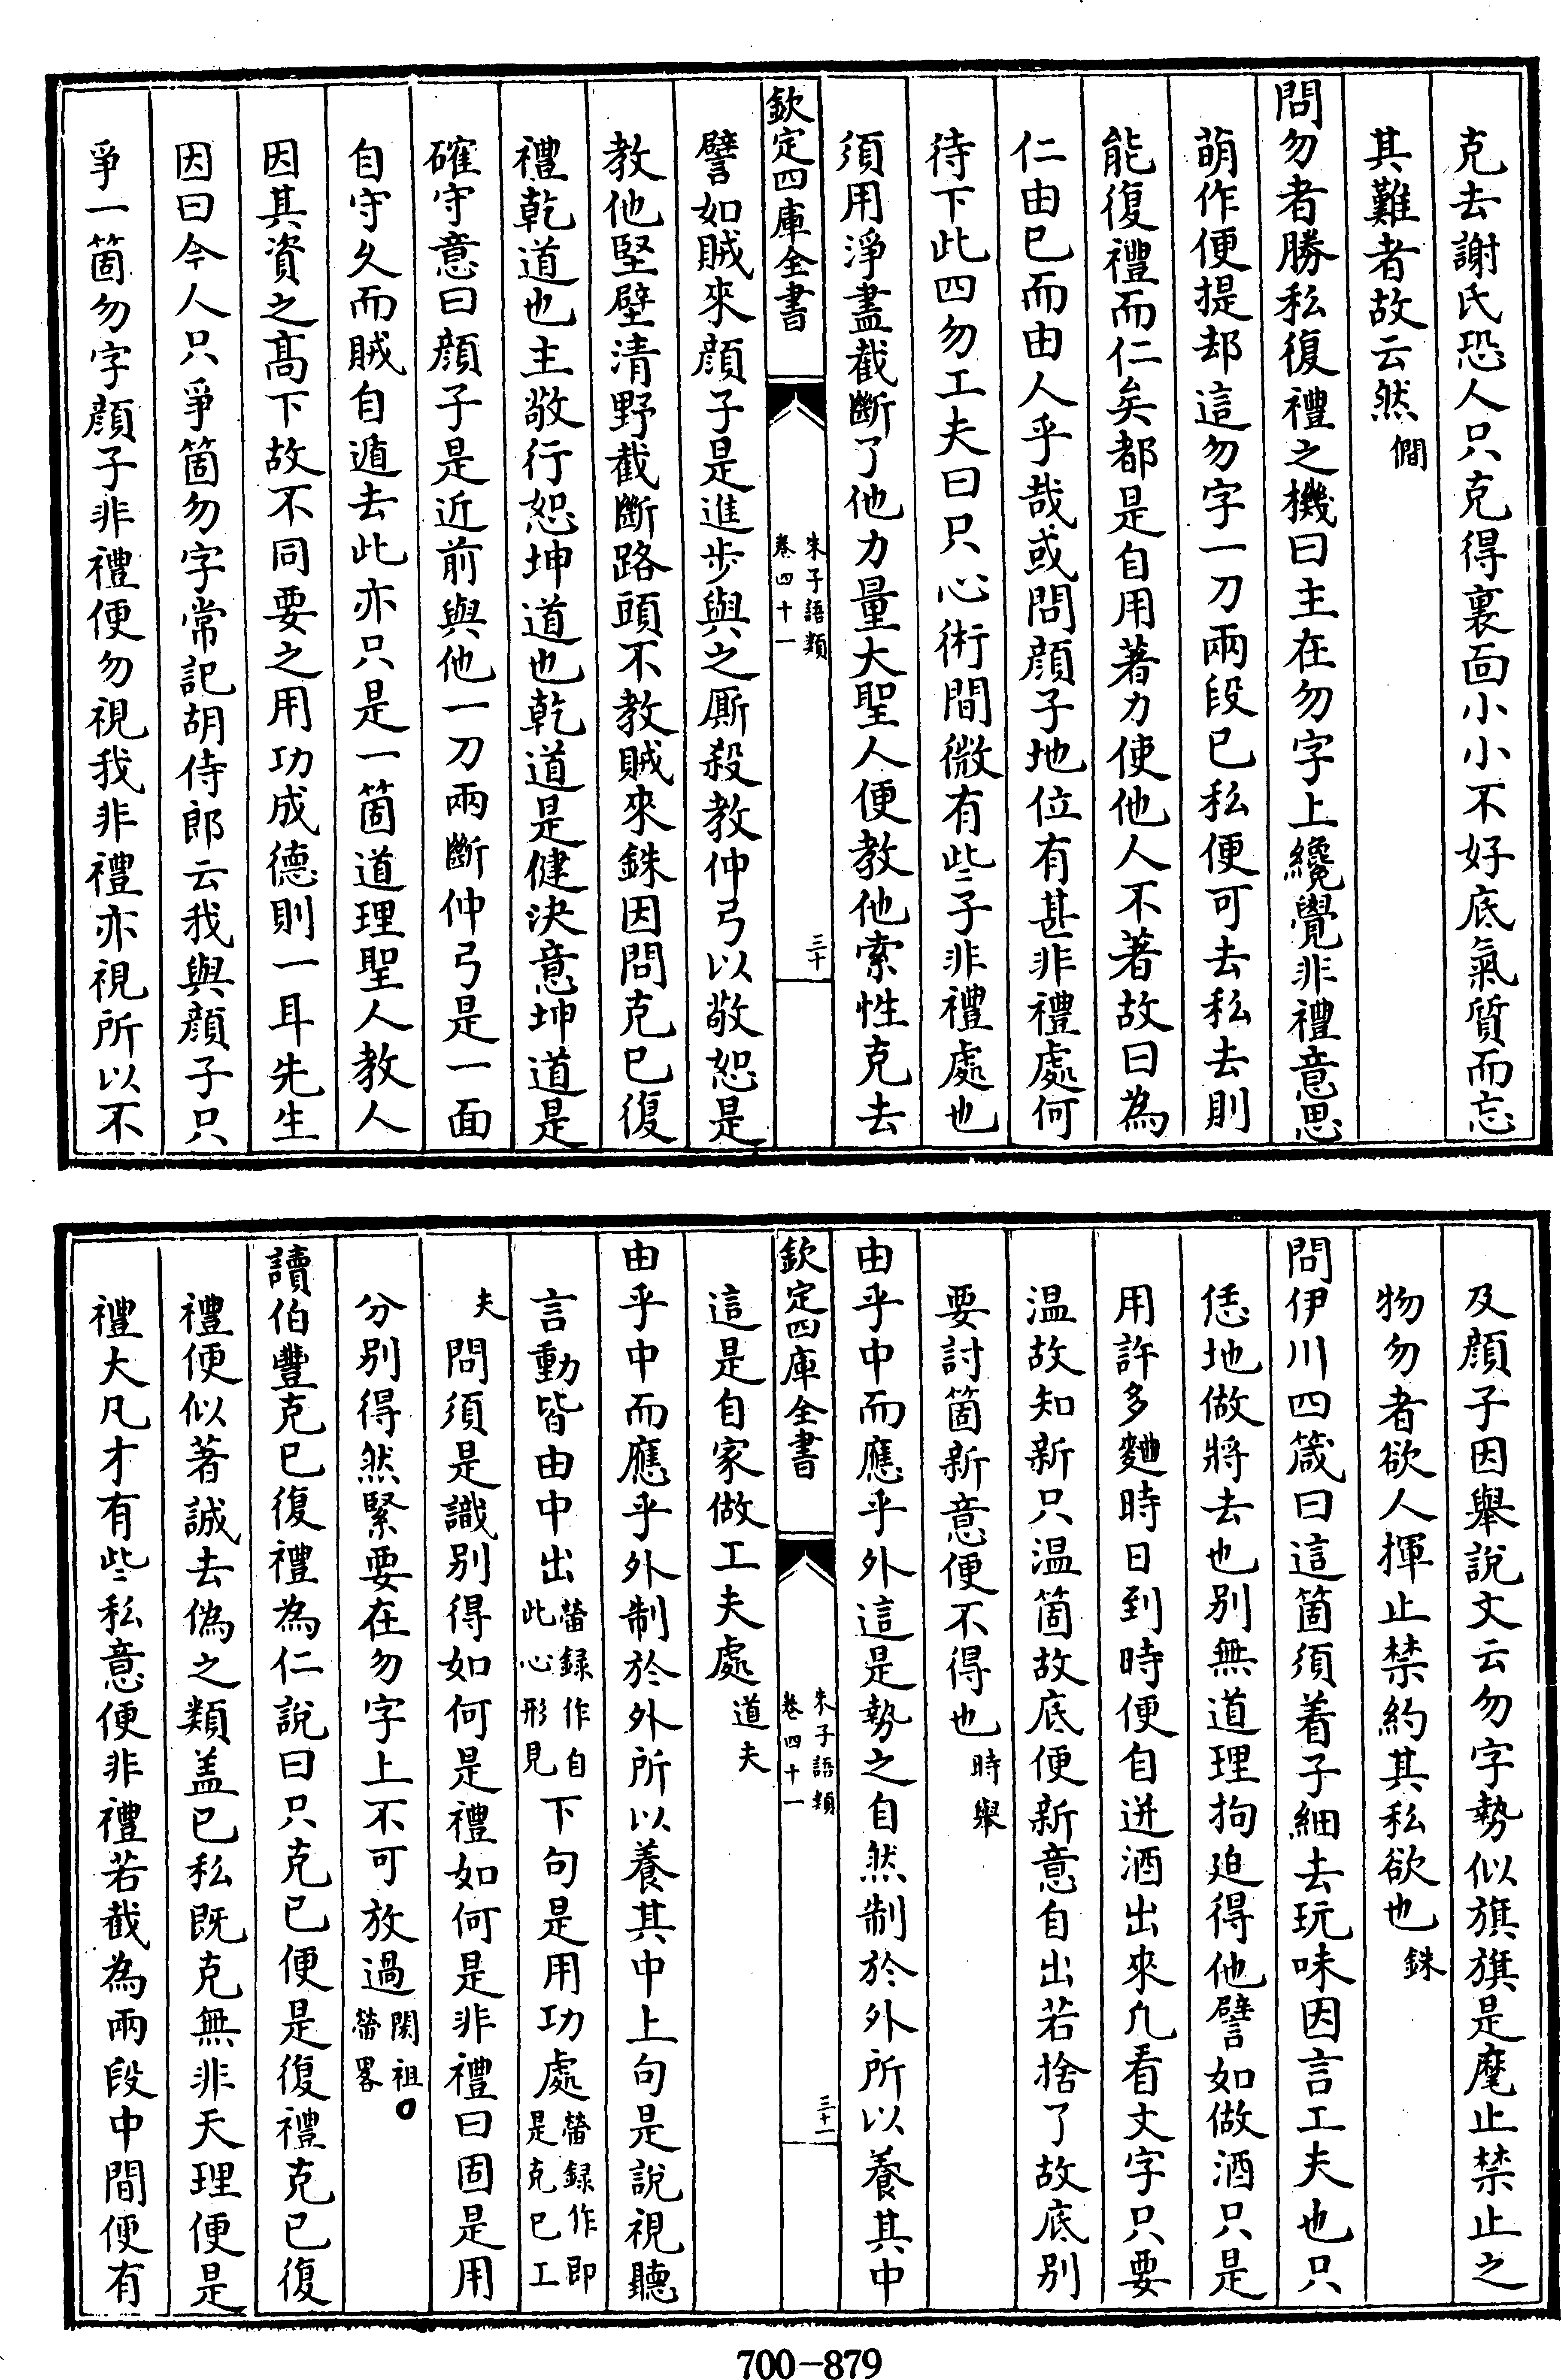 克去謝氏恐人只克得裏面小小不好底氣質而忘
其難者故云然僩
問勿者勝私復禮之機曰主在勿字上纔覺非禮意思
萌作便提却這勿字一刀兩段已私便可去私去則
能復禮而仁矣都是自用著力使他人不著故曰為
仁由已而由人乎哉或問顔子地位有甚非禮處何
待下此四勿工夫曰只心術間微有些子非禮處也
須用淨盡截斷了他力量大聖人便教他索性克去
欽定四庫全書
朱子語類
卷四十一
三十
譬如賊來顔子是進步與之厮殺教仲弓以敬恕是
教他堅壁清野截斷路頭不教賊來銖因問克已復
禮乾道也主敬行恕坤道也乾道是健決意坤道是
確守意曰顔子是近前與他一刀兩斷仲弓是一面
自守久而賊自遁去此亦只是一箇道理聖人教人
因其資之髙下故不同要之用功成德則一耳先生
因曰今人只爭箇勿字常記胡侍郎云我與顔子只
爭一箇勿字顔子非禮便勿視我非禮亦視所以不
及顔子因舉說文云勿字勢似旗旗是麾止禁止之
物勿者欲人揮止禁約其私欲也銖
問伊川四箴曰這箇須着子細去玩味因言工夫也只
恁地做將去也别無道理拘迫得他譬如做酒只是
用許多麯時日到時便自迸酒出來凡看文字只要
温故知新只温箇故底便新意自出若捨了故底别
要討箇新意便不得也時舉
由乎中而應乎外這是勢之自然制於外所以養其中
欽定四庫全書
朱子語類
卷四十一
三十一
這是自家做工夫處道夫
由乎中而應乎外制於外所以養其中上句是說視聽
言動皆由中出㽦録作自此心形見下句是用功處㽦録作即是克已工
夫問須是識别得如何是禮如何是非禮曰固是用
分别得然緊要在勿字上不可放過閎祖○㽦畧
讀伯豐克已復禮為仁說曰只克已便是復禮克已復
禮便似著誠去偽之類盖已私既克無非天理便是
禮大凡才有些私意便非禮若截為兩段中間便有
700-879